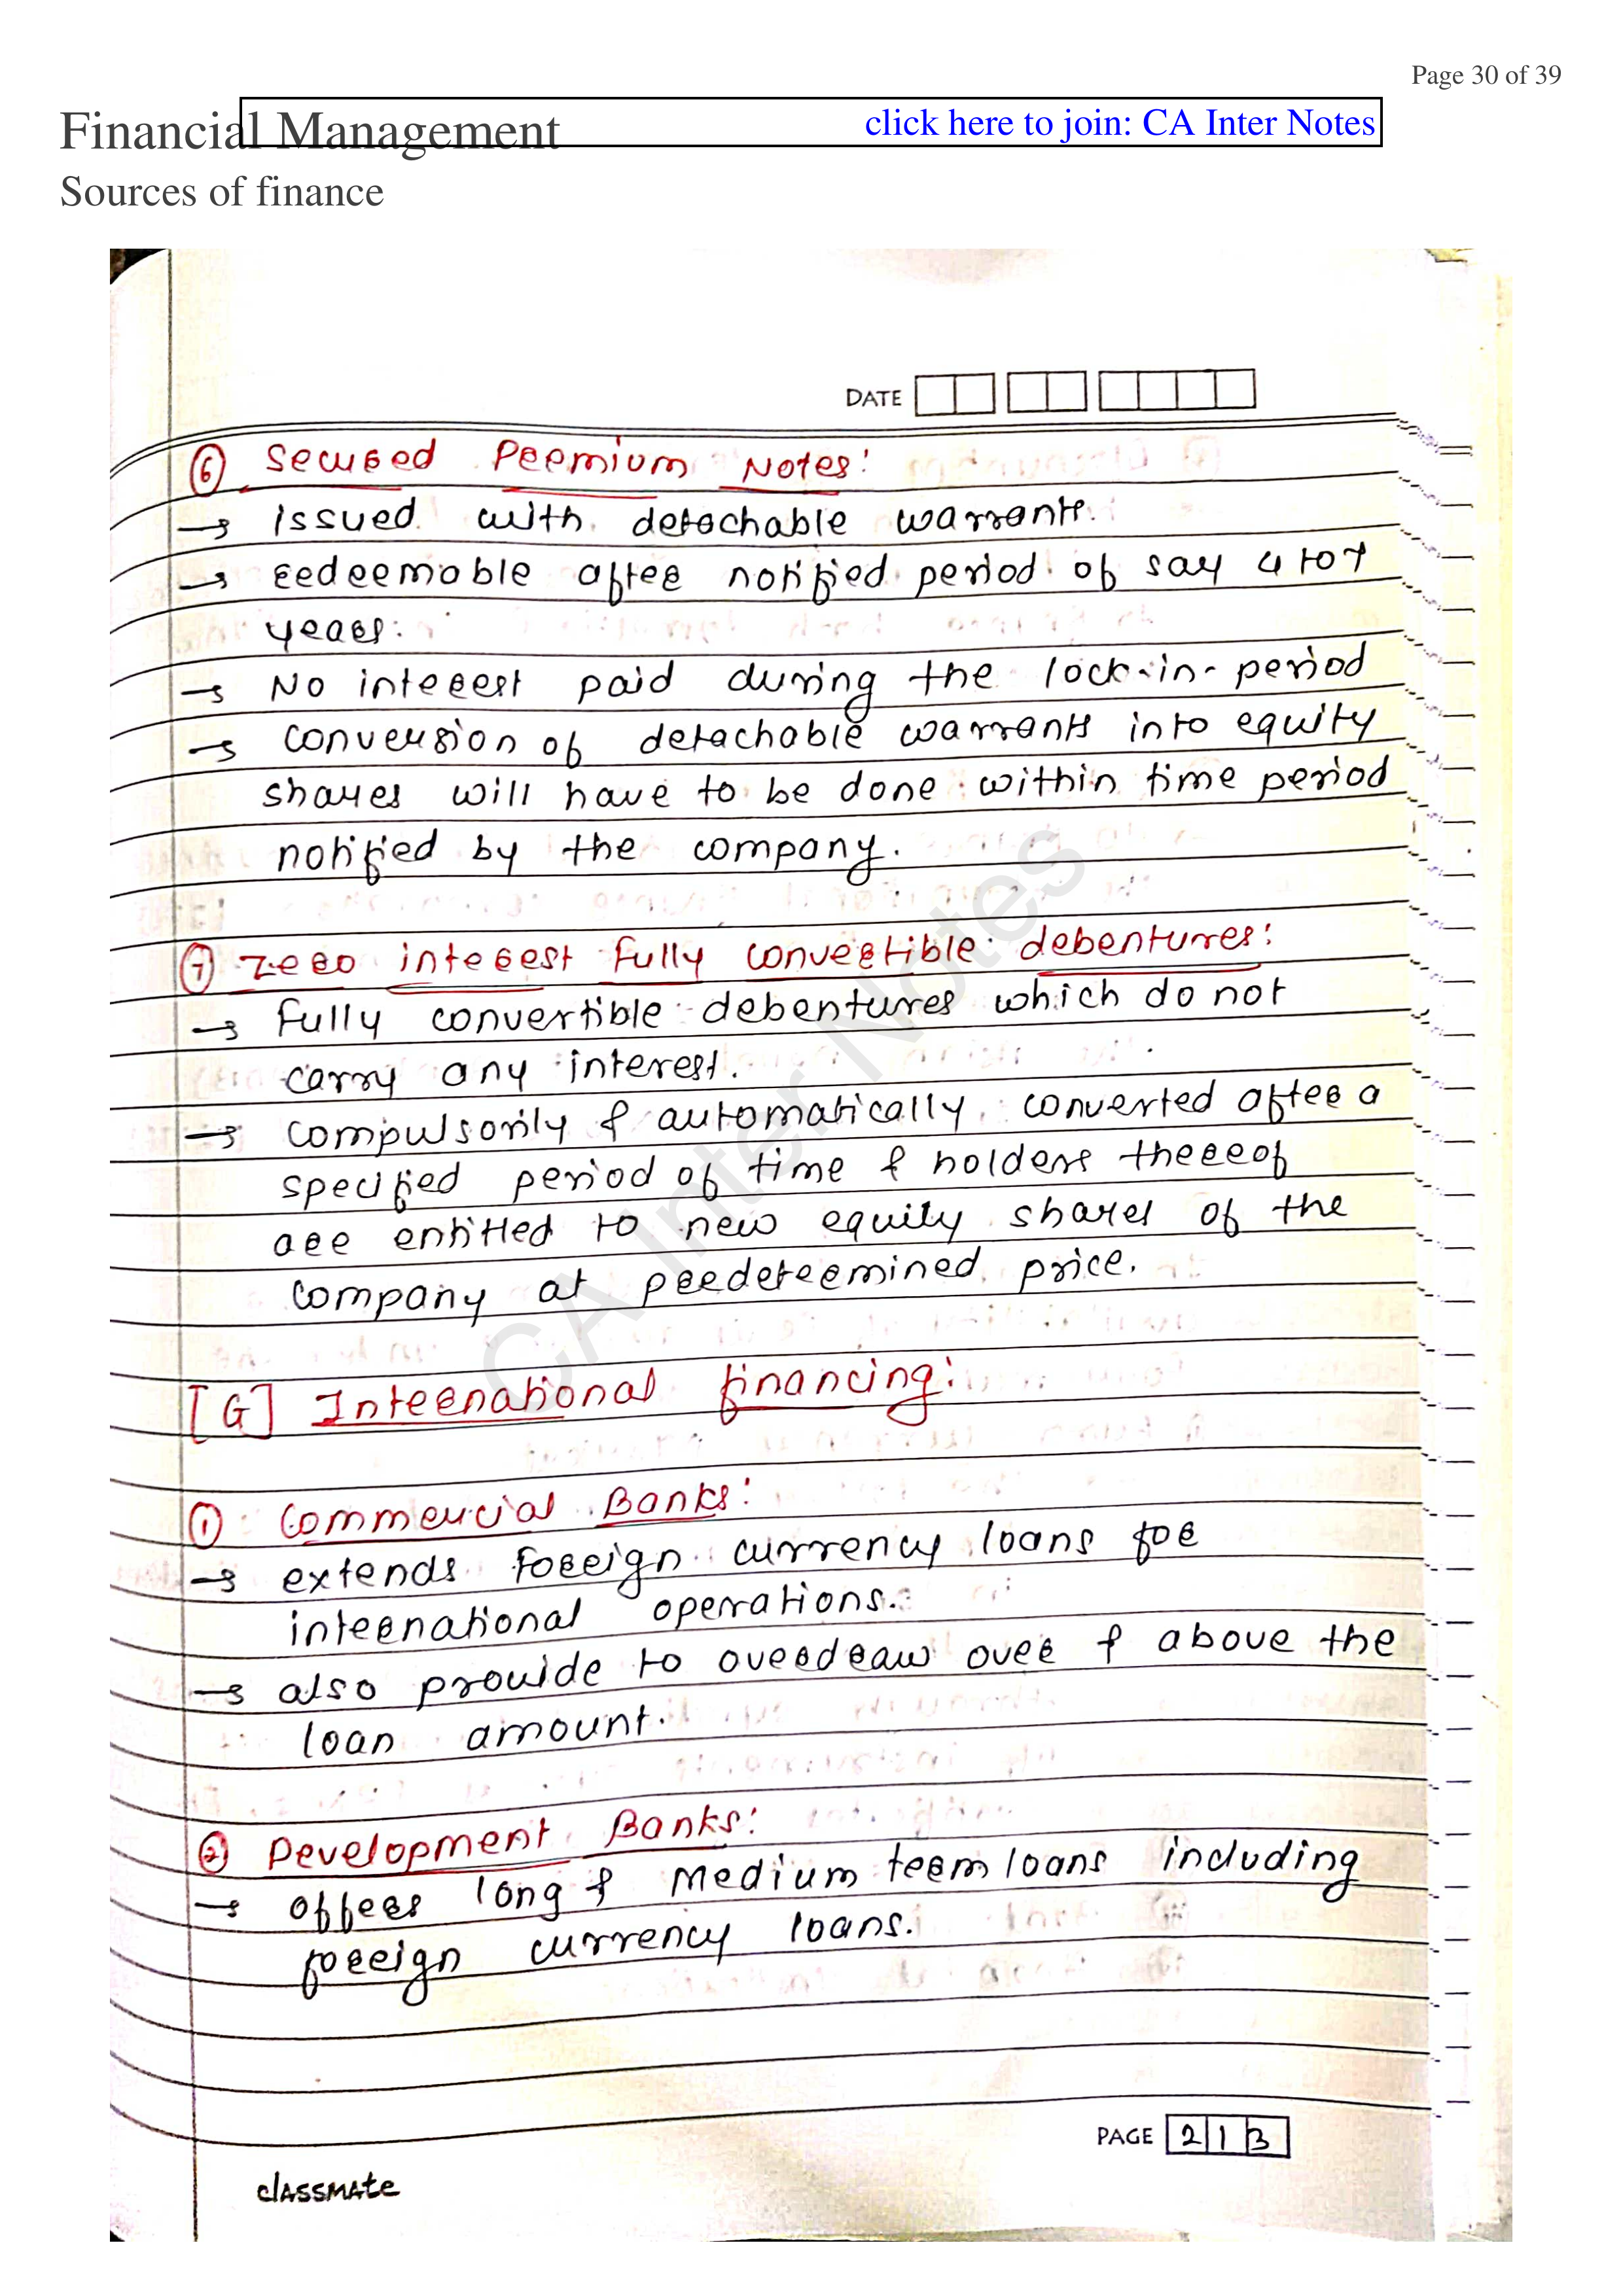 Page 30 of 39
Financial Management
click here to join: CA Inter Notes
Sources of finance
DATE
⑥ Secured Premium Notes:
→ issued with detachable warrants.
→ redeemable after notified period of say 4 to 7
years.
→ No interest paid during the lock-in-period
→ conversion of detachable warrants into equity
shares will have to be done within time period
notified by the company.
⑦ Zero interest fully convertible debentures:
→ fully convertible debentures which do not
carry any interest.
→ compulsorily & automatically converted after a
specified period of time & holders thereof
are entitled to new equity shares of the
company at predetermined price.
[G] International financing:
① Commercial Banks:
→ extends foreign currency loans for
international operations.
→ also provide to overdraw over & above the
loan amount.
② Development Banks:
→ offers long & medium term loans including
foreign currency loans.
CA Inter Notes
PAGE 213
classmate